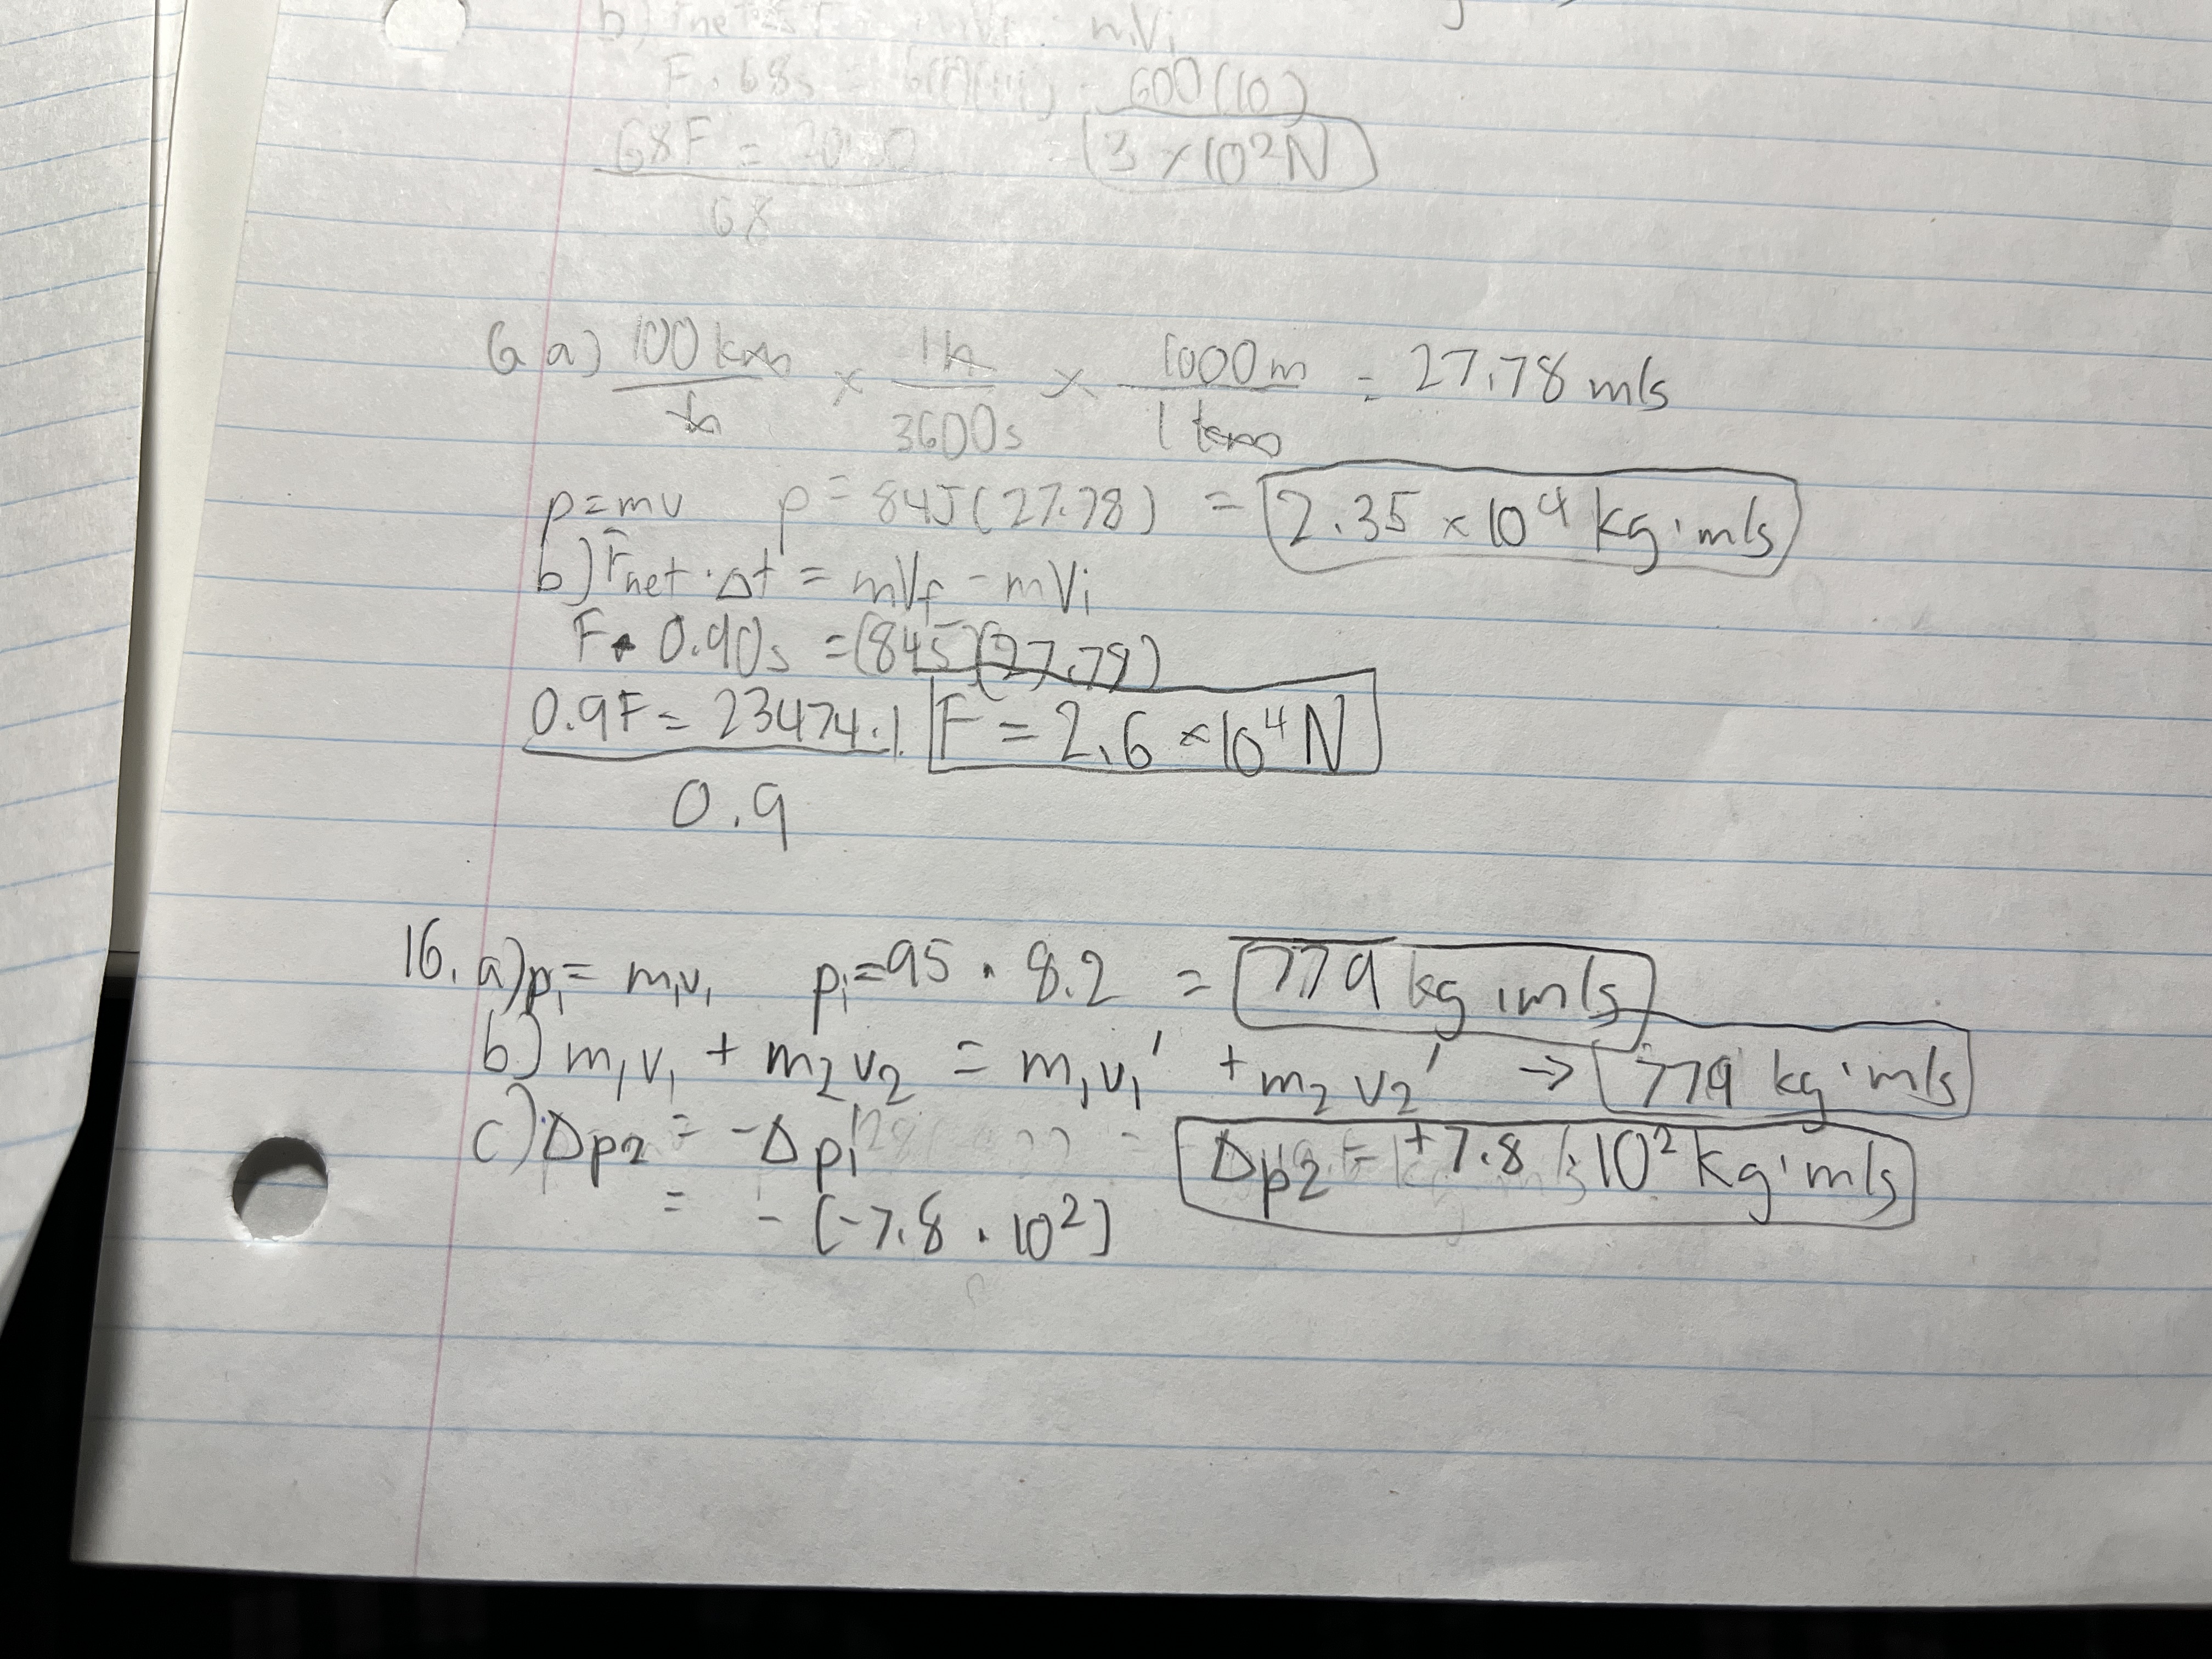 b) Fnet · = mVf - mVi
F · 68s = 600(10)
68F = 2000 3 × 10² N
68
6 a) 100 km/h × 1h/3600s × 1000m/1 km = 27.78 m/s
p = mv p = 845(27.78) = 2.35 × 10⁴ kg·m/s
b) Fnet · Δt = mVf - mVi
F · 0.90s = (845)(27.78)
0.9F = 23474.1 F = 2.6 × 10⁴ N
0.9
16. a) p₁ = m₁v₁ p₁ = 95 · 8.2 = 779 kg·m/s
b) m₁v₁ + m₂v₂ = m₁v₁' + m₂v₂' → 779 kg·m/s
c) Δp2 = -Δp1 Δp2 = +7.8 · 10² kg·m/s
= -(-7.8 · 10²)